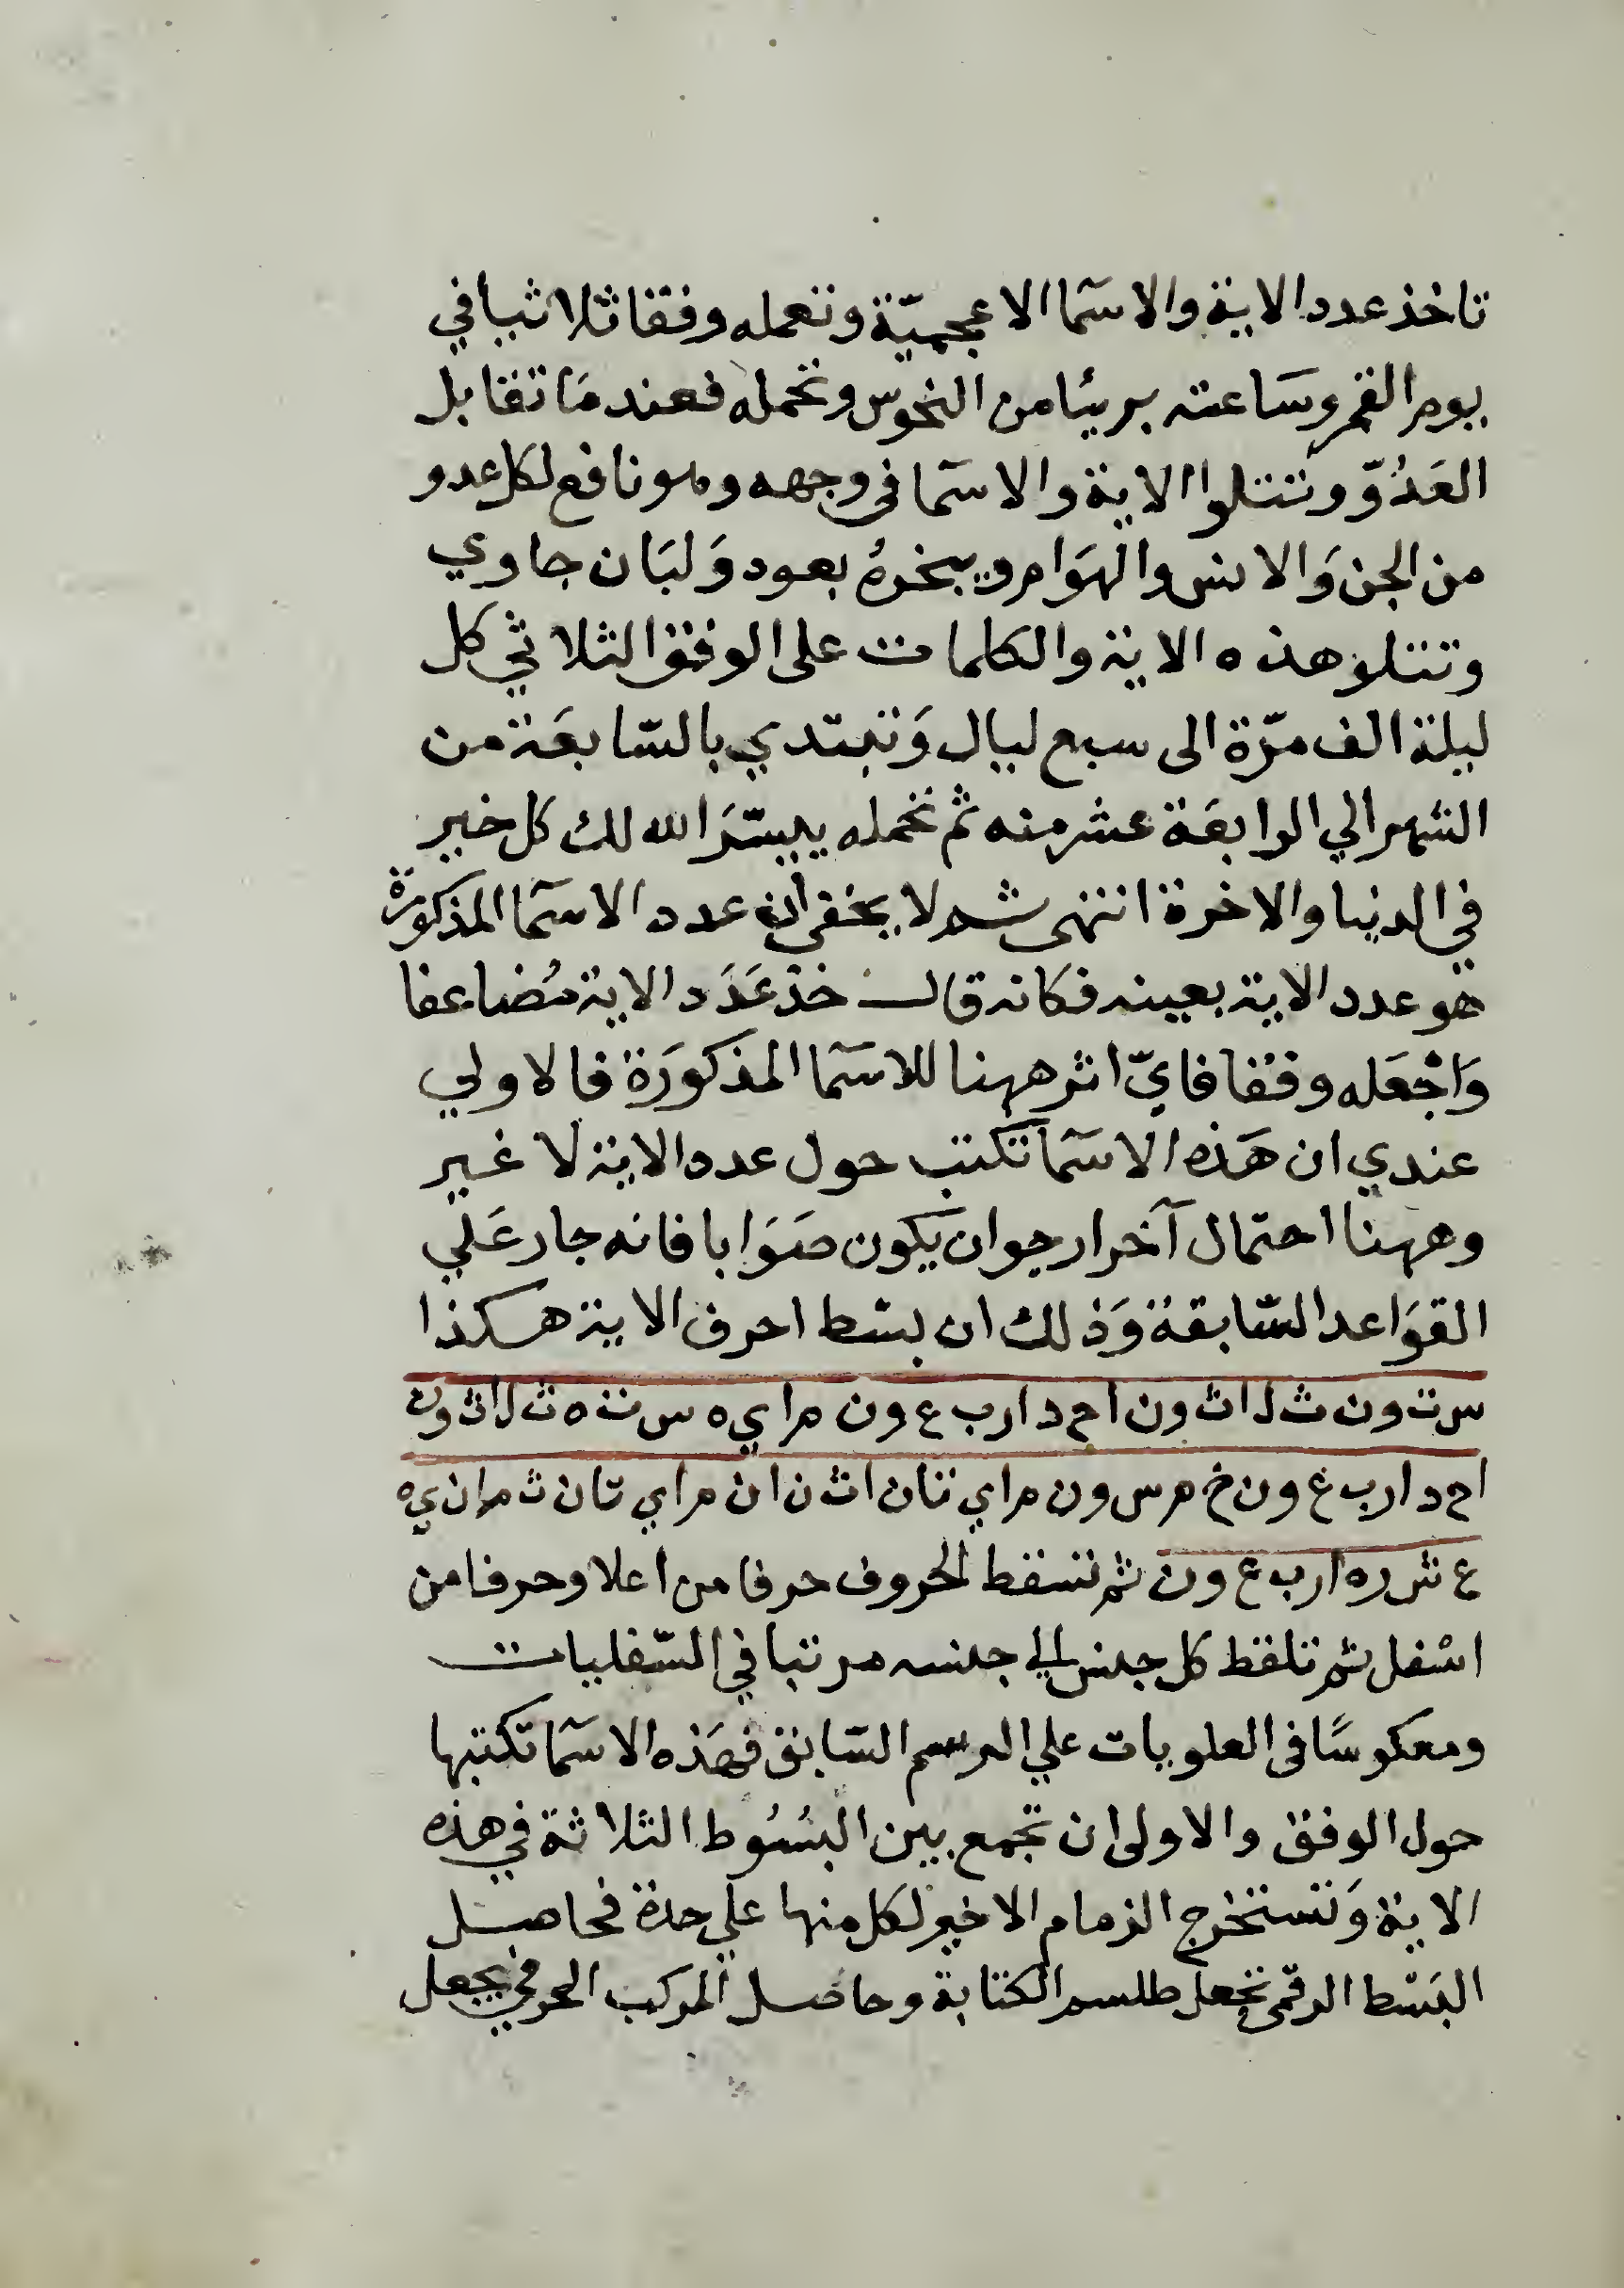 تاخذ عدد الاية والاسمآ الاعجميّة وتعمله وفقا ثلاثيا في
يوم القمر وسَاعته بريئا من النحوس وتحمله فعند مَا تقابل
العَدُوّ وتتلوا الاية والاسمآ فى وجهه وهو نافع لكل عدو
من الجن وَالانس والهوَام ويبخرهُ بعود وَلبَان جاوي
وتتلو هذه الاية والكلمات على الوفق الثلاثي كل
ليلة الف مرّة الى سبع ليال وَتبتدي بالسّابعَة من
الشهر الي الرابعَة عشر منه ثم تحمله ييسّرَ الله لك كل خير
في الدنيا والاخرة انتهى ثم لا يخفى ان عدد الاسمآ المذكورة
هو عدد الاية بعينه فكانه قال خذ عَدَد الاية مُضاعفا
وَاجْعَله وفقا فايّ اثر ههنا للاسمآ المذكورَة فالاولي
عندي ان هَذه الاسمآ تكتب حول عدد الاية لا غير
وههنا احتمال آخر ارجو ان يكون صَوَابا فانه جار عَلي
القوَاعد السّابقة وَذلك ان بسط احرف الاية هكذا
س ت و ن ث ل ا ث و ن ا ح د ا ر ب ع و ن م ا ي ه س ت ه ث ل ا ث و ن
ا ح د ا ر ب ع و ن خ م س و ن م ا ي ت ا ن ا ث ن ا ن م ا ي ت ا ن ث م ا ن ي ه
ع ش ر ه ا ر ب ع و ن ثم تسقط الحروف حرفا من اعلا وحرفا من
اسْفل ثم تلقط كل جنس الي جنسه مرتبا في السّفليات
ومعكوسًا فى العلويات علي الرسم السّابق فهَذه الاسمآ تكتبها
حول الوفق والاولى ان تجمع بين البسُوط الثلاثة في هذه
الاية وَتستخرج الزمام الاخير لكل منها علي حدة فحاصل
البَسْط الرقمى تجعل طلسم الكتابة وحاصل المركب الحرفي يجعل